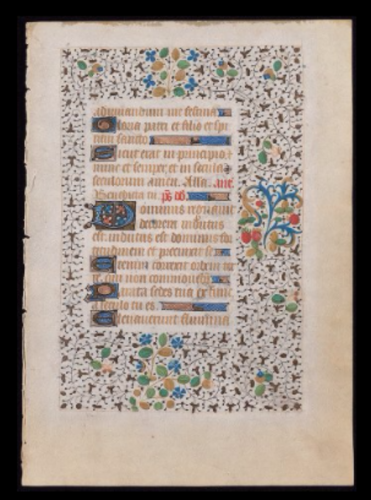 adiuuandum me festina
Gloria patri et filio et spi
ritui sancto
Sicut erat in principio et
nunc et semper et in secula
seculorum amen. Alla. ane.
Benedicta tu. ps.
Dominus regnauit
decorem indutus
est indutus est dominus for
titudinem et precinxit se
Etenim orbem ter
re qui non commouebi
Parata sedes tua ex tunc
a seculo tu es
Eleuauerunt flumina